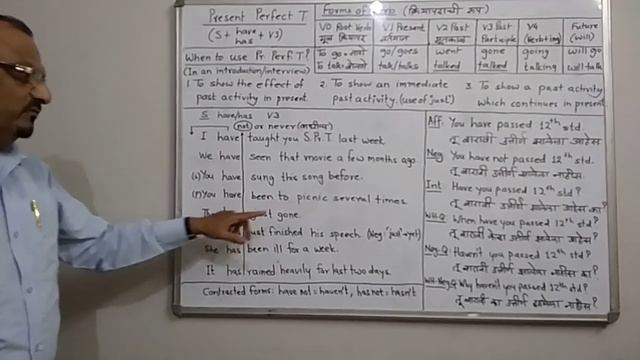 Present Perfect T
(S + have/has + V3)
Forms of (क्रियापदाची रूप)
V0 Root Verb मूळ क्रियापद
V1 Present वर्तमान
V2 Past भूतकाळ
V3 Past Participle
V4 (Verb+ing)
Future (will)
To go = जाणे go/goes went gone going will go
To talk = बोलणे talk/talks talked talked talking will talk
When to use Pr. Perf. T?
(In an introduction/interview)
1. To show the effect of past activity in present.
2. To show an immediate past activity. (use of 'just')
3. To show a past activity which continues in present.
S have/has V3
not or never
I have taught you S.Pr.T. last week.
We have seen that movie a few months ago.
(S) You have sung this song before.
(P) You have been to picnic several times.
gone.
just finished his speech
She has been ill for a week.
It has rained heavily for last two days.
Contracted forms: have not = haven't, has not = hasn't
Aff. You have passed 12th std.
तू बारावी उत्तीर्ण झालेला आहेस
Neg. You have not passed 12th std.
तू बारावी उत्तीर्ण झालेला नाहीस.
Int. Have you passed 12th std?
तू बारावी उत्तीर्ण झालेला आहेस का?
WH.Q. When have you passed 12th std?
तू बारावी केव्हा उत्तीर्ण झालेला आहेस?
Neg.Q. Haven't you passed 12th std?
तू बारावी उत्तीर्ण झालेला नाहीस का?
WH.Neg.Q Why haven't you passed 12th std?
तू बारावी का उत्तीर्ण झालेला नाहीस?